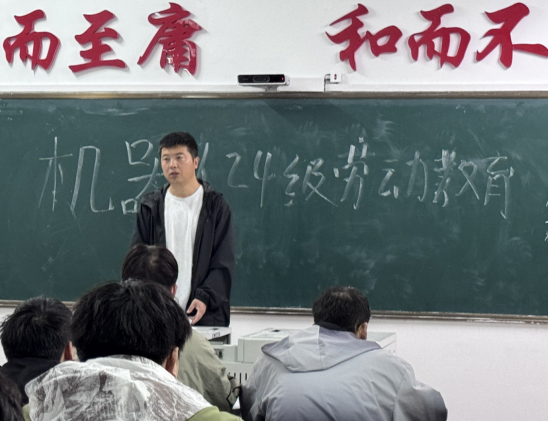 而至庸 和而不
机器 24级劳动教育